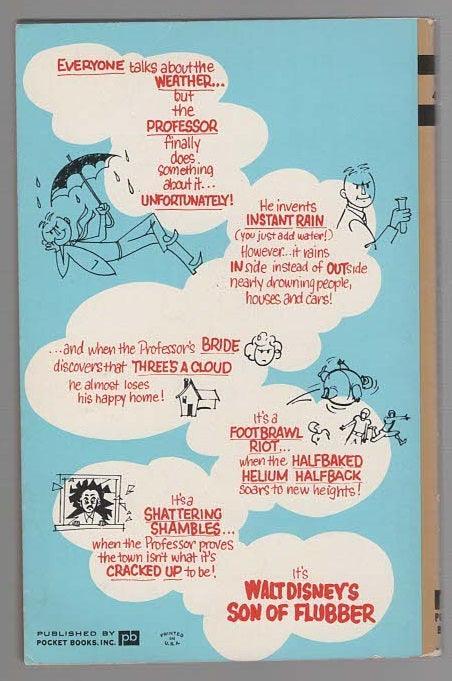 EVERYONE talks about the
WEATHER...
but
the
PROFESSOR
finally
does
something
about it...
UNFORTUNATELY!
He invents
INSTANT RAIN
(you just add water!)
However...it rains
INside instead of OUTside
nearly drowning people,
houses and cars!
...and when the Professor's BRIDE
discovers that THREE'S A CLOUD
he almost loses
his happy home!
It's a
FOOTBRAWL
RIOT...
when the HALFBAKED
HELIUM HALFBACK
soars to new heights!
It's a
SHATTERING
SHAMBLES...
when the Professor proves
the town isn't what it's
CRACKED UP to be!
It's
WALT DISNEY'S
SON OF FLUBBER
PUBLISHED BY
POCKET BOOKS, INC.
pb
PRINTED
IN
U.S.A.